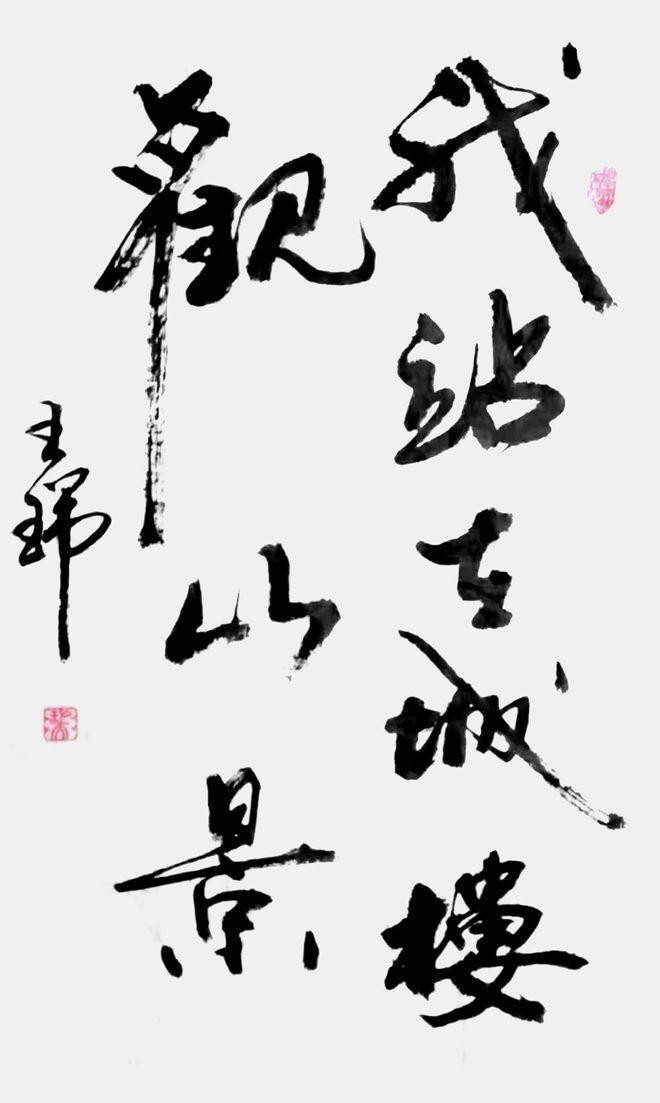 我站在城樓
觀山景
王